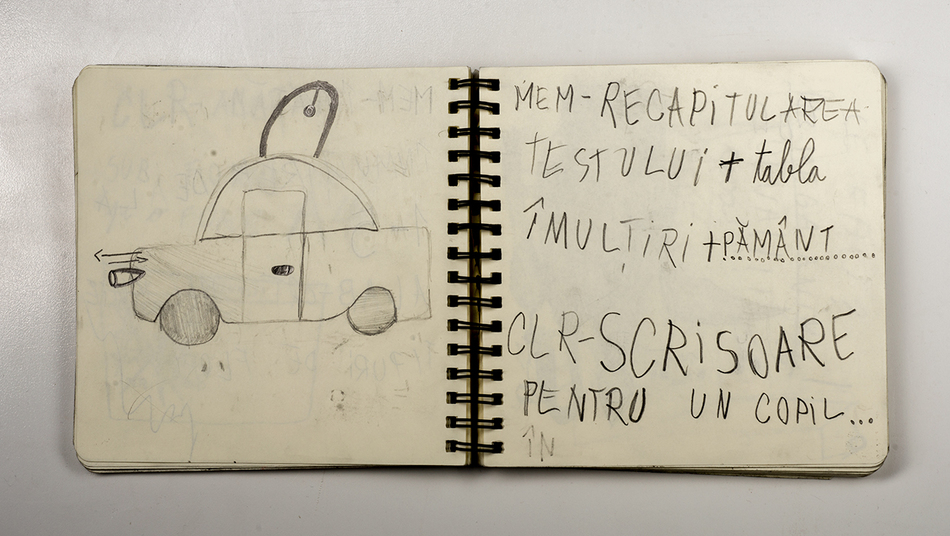 MEM-RECAPiTULAREA
TESTULUi + tabla
ÎMULȚiRi +PĂMÂNT
CLR-SCRiSOARE
PENTRU UN COPiL...
ÎN